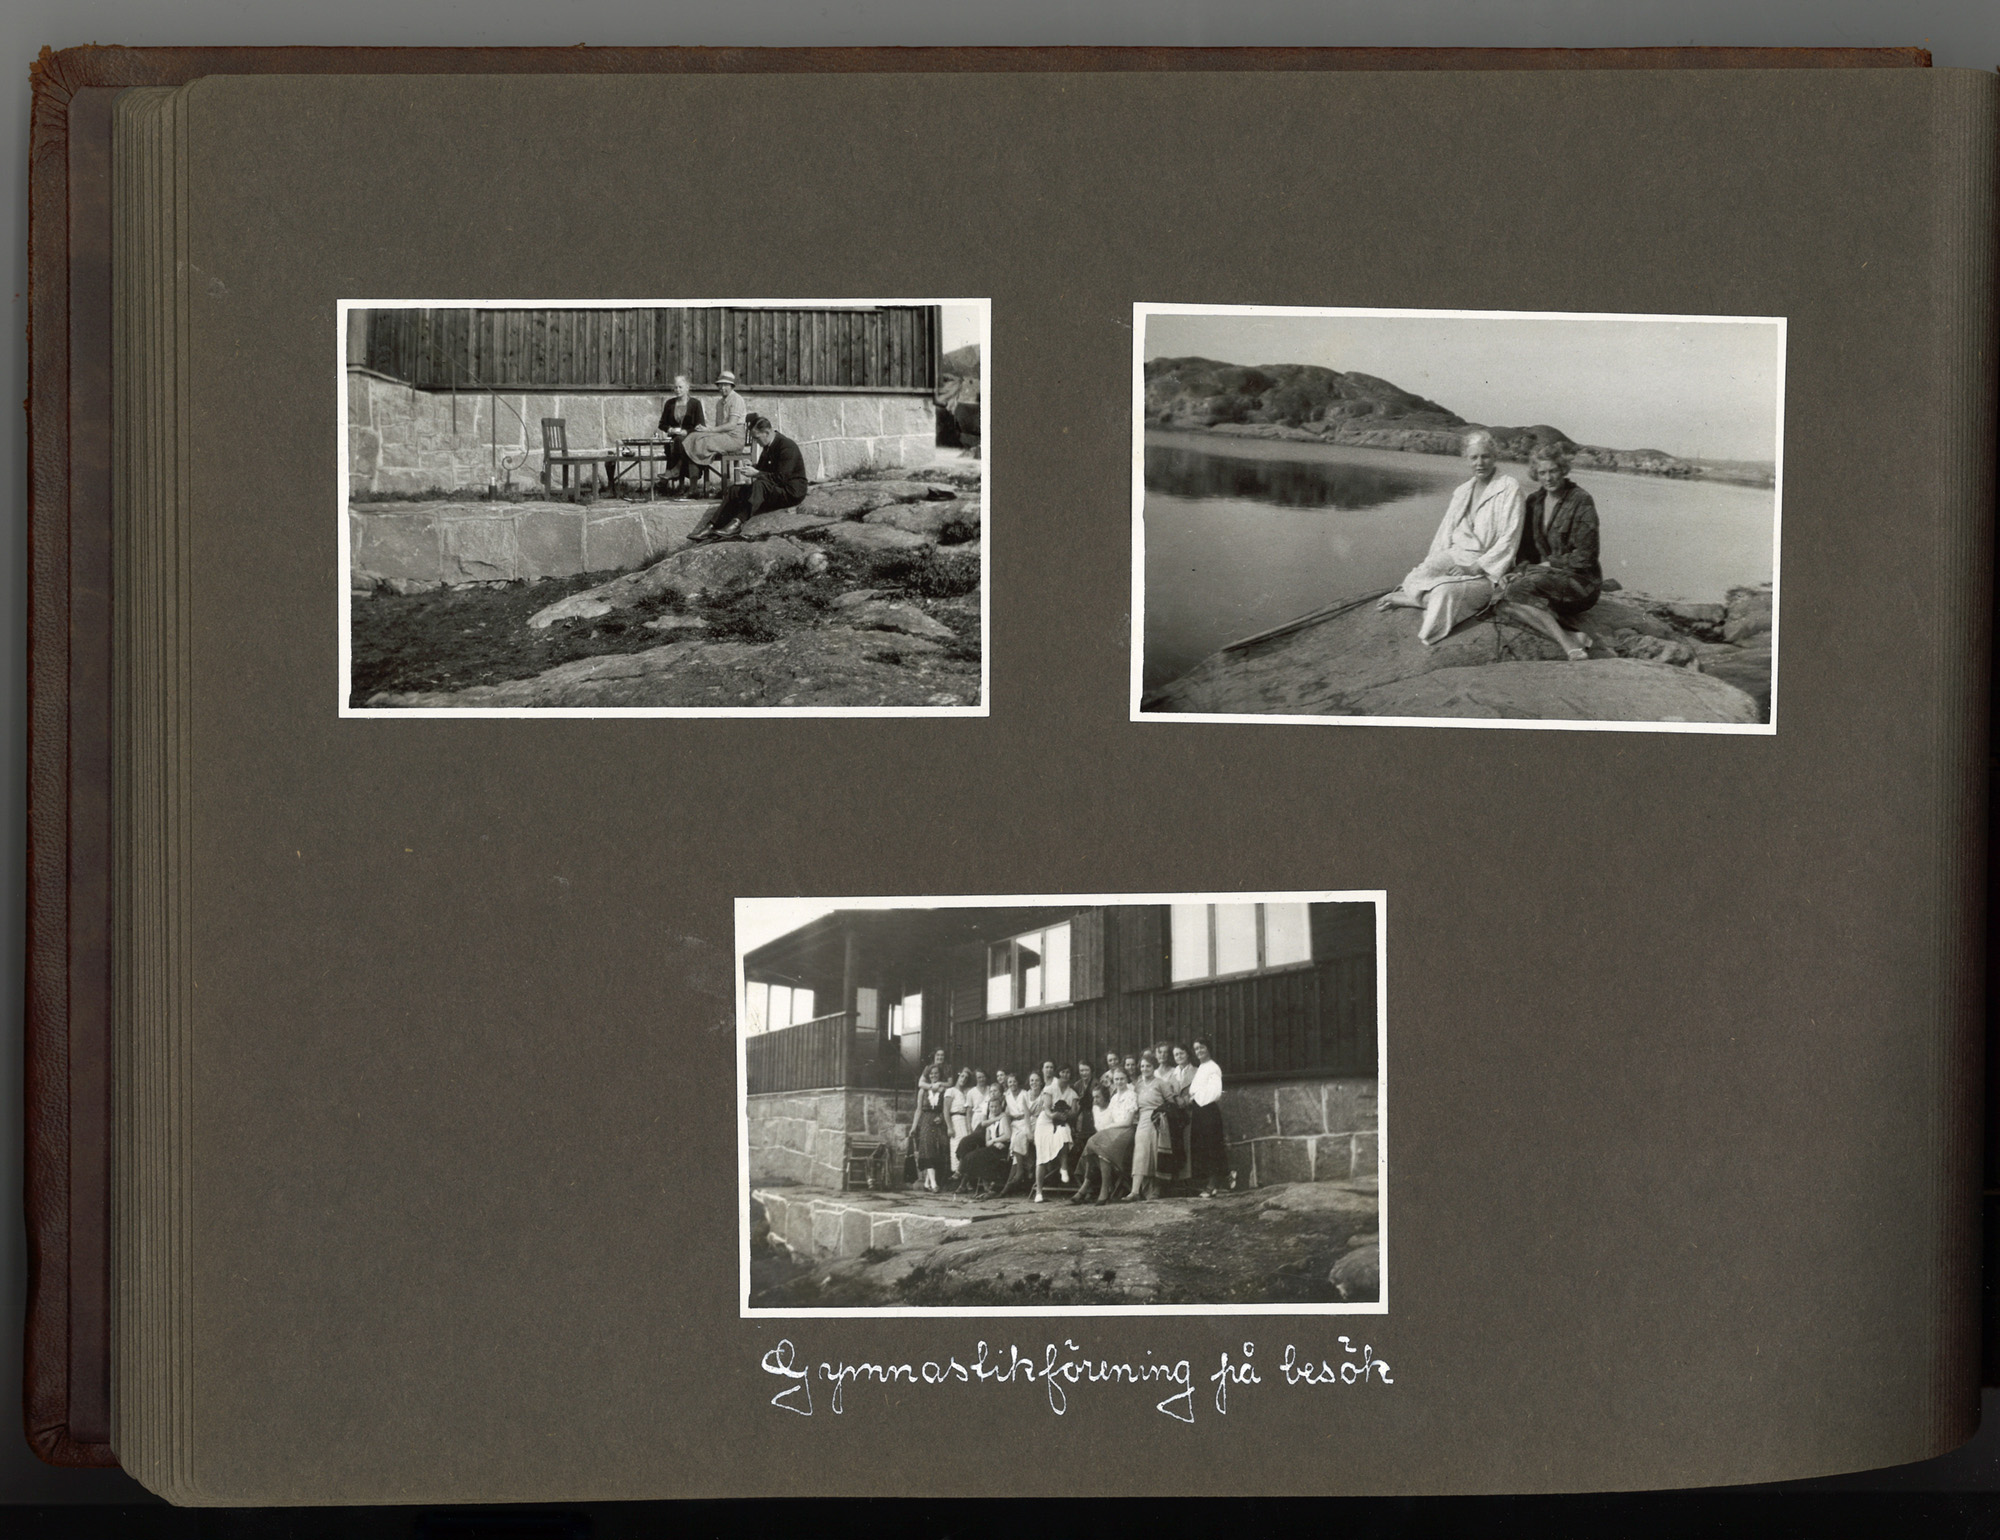 Gymnastikförening på besök